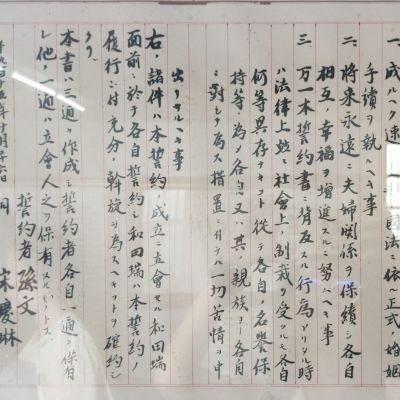 一、成ルヘク速ニ 国法ニ依ル正式ノ婚姻
手續ヲ執ルヘキ事
二、将来永遠ニ夫婦関係ヲ保續シ各自
相互ノ幸福ヲ増進スルニ努ムヘキ事
三、万一本誓約書ニ背反スル行為アリタル時
ハ法律上並ニ社會上ノ制裁ヲ受クルモ各自
何等異存ナキコト従テ各自ノ名譽保
持等ノ為メ各自又ハ其ノ親族ヨリ各自
ニ對シテ為ス措置ニ付テハ一切苦情ヲ申
出サルヘキ事
右ノ諸件ハ本誓約ノ成立ニ立會セル和田瑞
ノ面前ニ於テ各自誓約シ和田瑞ハ本誓約ノ
履行ニ付充分ノ斡旋ヲ為スヘキコトヲ確約シ
タリ
本書ハ三通ヲ作成シ誓約者各自一通ヲ保有
シ他ノ一通ハ立會人之ヲ保有スルモノトス
千九百十五年十月二十六日
誓約者 孫文
同 宋慶琳